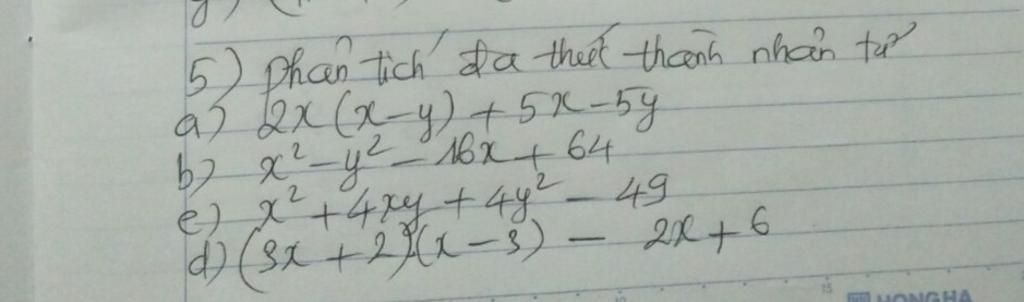 5) Phân tích đa thức thành nhân tử
a) 2x(x-y)+5x-5y
b) x²-y²-16x+64
c) x²+4xy+4y²-49
d) (3x+2)(x-3) - 2x+6
HONGHA